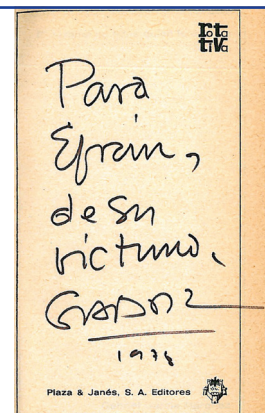 rota
tiva
Para
Efraín,
de su
víctima,
GABO
1978
Plaza & Janés, S. A. Editores